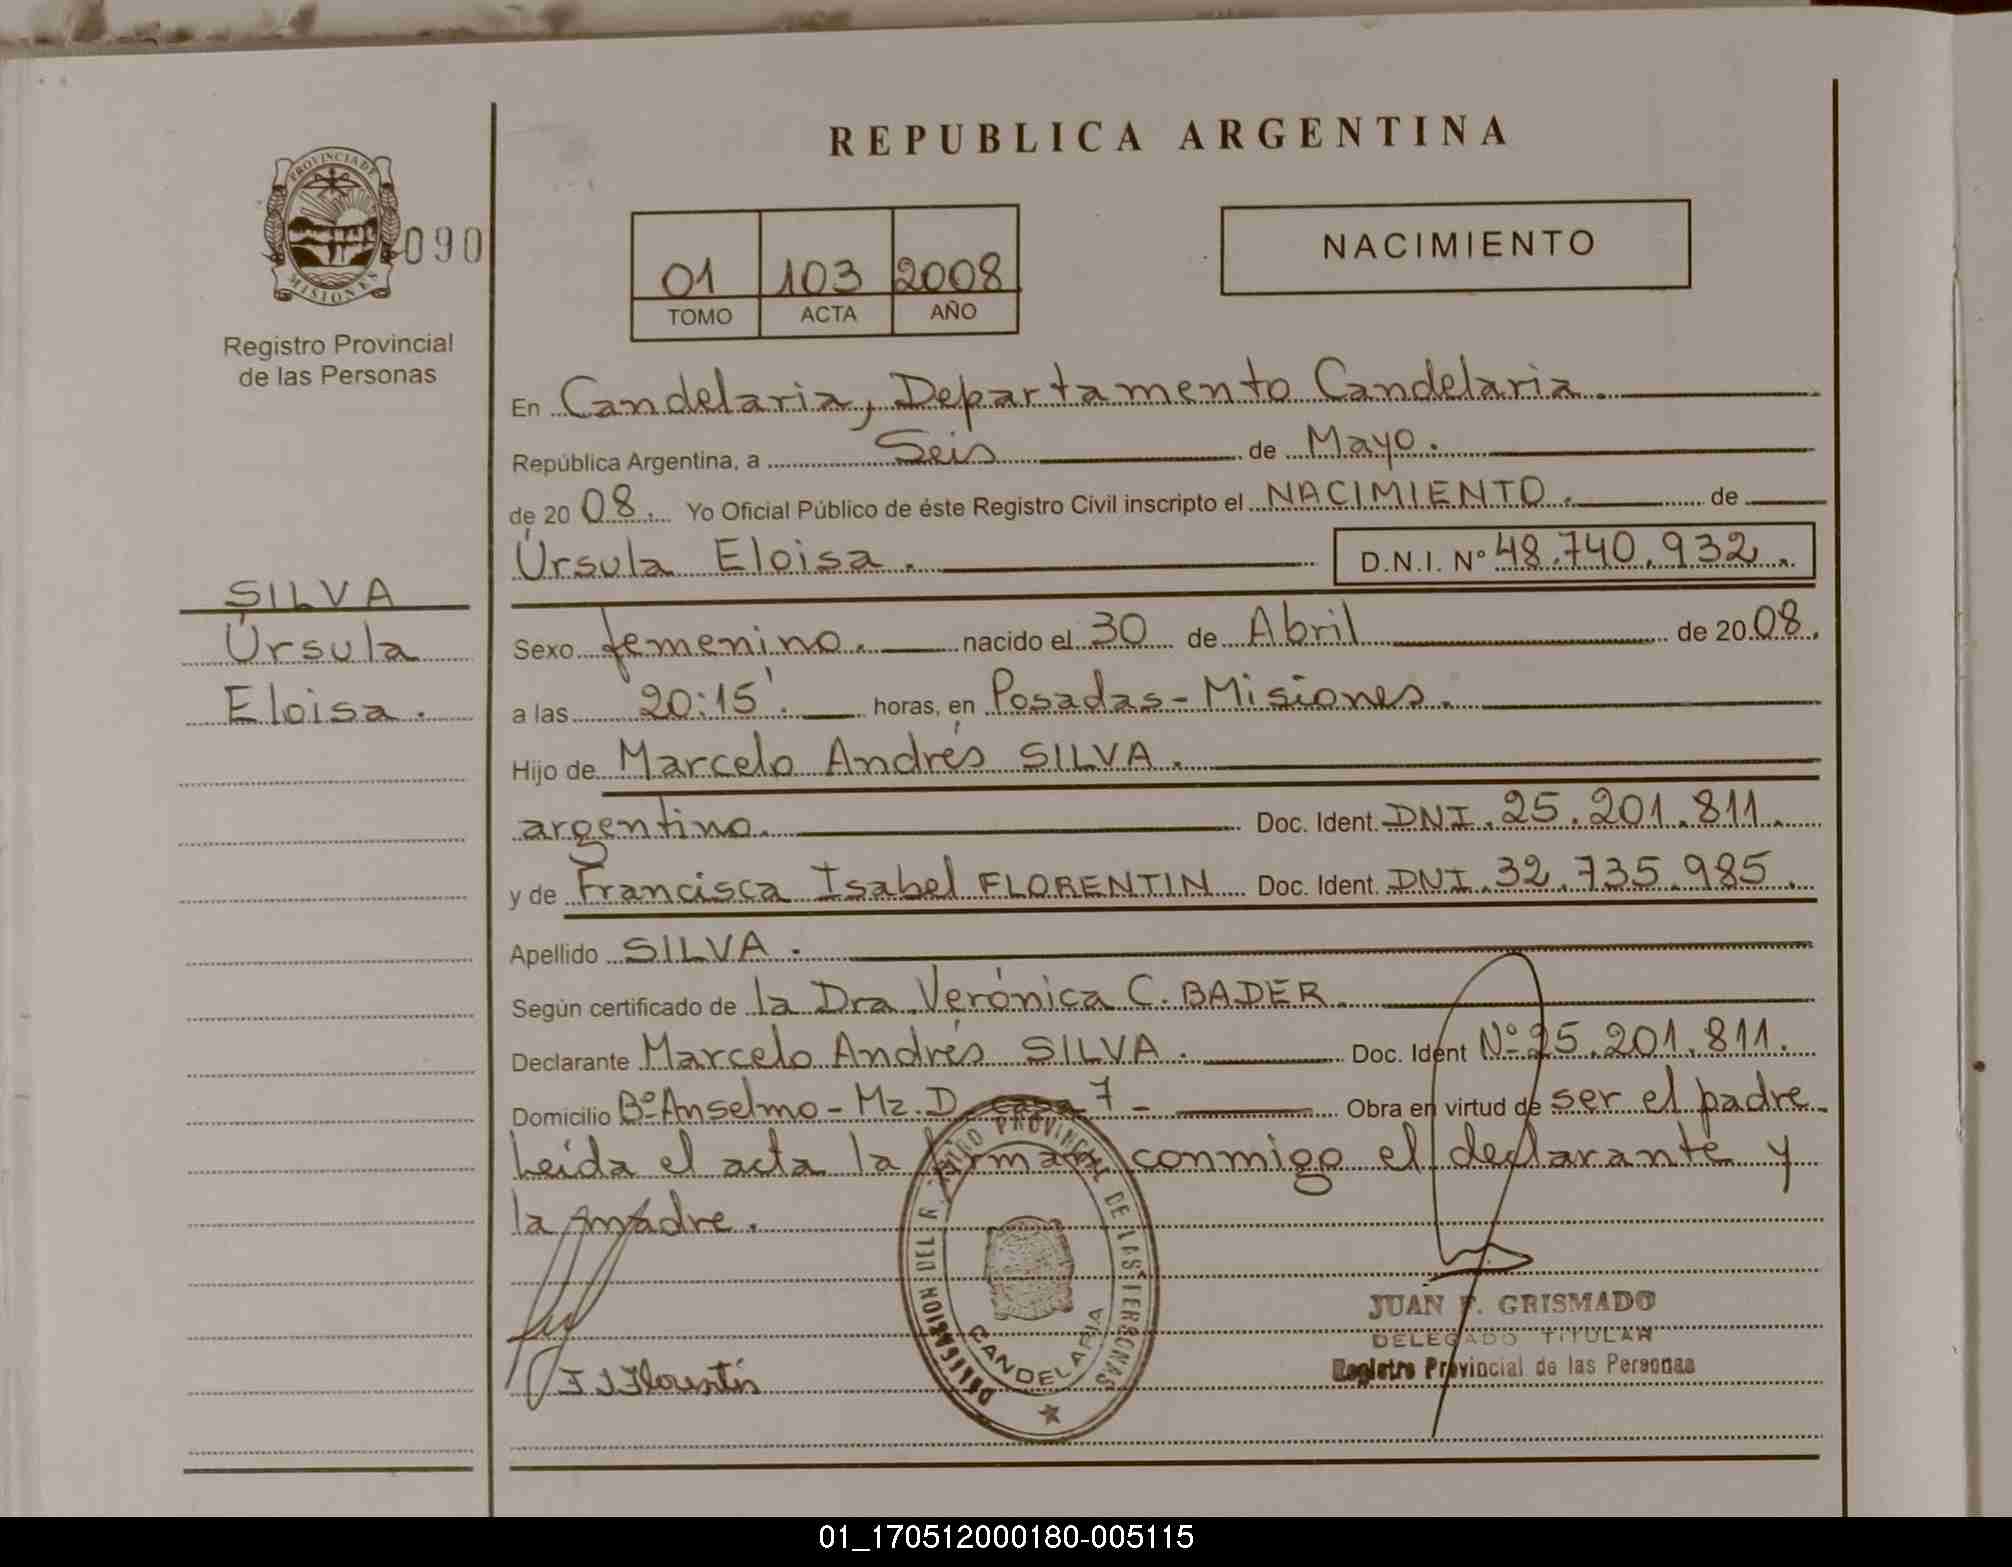 REPUBLICA ARGENTINA
PROVINCIA DE
MISIONES
090
Registro Provincial
de las Personas
01 103 2008
TOMO ACTA AÑO
NACIMIENTO
SILVA
Úrsula
Eloisa.
En Candelaria, Departamento Candelaria.
República Argentina, a Seis de Mayo.
de 20 08. Yo Oficial Público de éste Registro Civil inscripto el NACIMIENTO. de
Úrsula Eloisa. D.N.I. Nº 48.740.932.
Sexo femenino. nacido el 30 de Abril de 20 08.
a las 20:15'. horas, en Posadas - Misiones.
Hijo de Marcelo Andrés SILVA.
argentino. Doc. Ident. DNI. 25.201.811.
y de Francisca Isabel FLORENTIN Doc. Ident. DNI. 32.735.985.
Apellido SILVA.
Según certificado de la Dra. Verónica C. BADER.
Declarante Marcelo Andrés SILVA. Doc. Ident Nº 25.201.811.
Domicilio Bº Anselmo - Mz. D casa 7 - Obra en virtud de ser el padre.
Leída el acta la firman conmigo el declarante y
la madre.
DELEGACION DEL REGISTRO PROVINCIAL DE LAS PERSONAS
CANDELARIA
JUAN F. GRISMADO
DELEGADO TITULAR
Registro Provincial de las Personas
F I Florentin
01_170512000180-005115